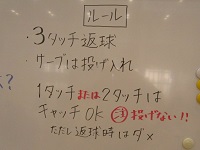 ルール
・3タッチ返球
・サーブは投げ入れ
・1タッチまたは2タッチは
キャッチOK ③投げない!!
ただし返球時はダメ